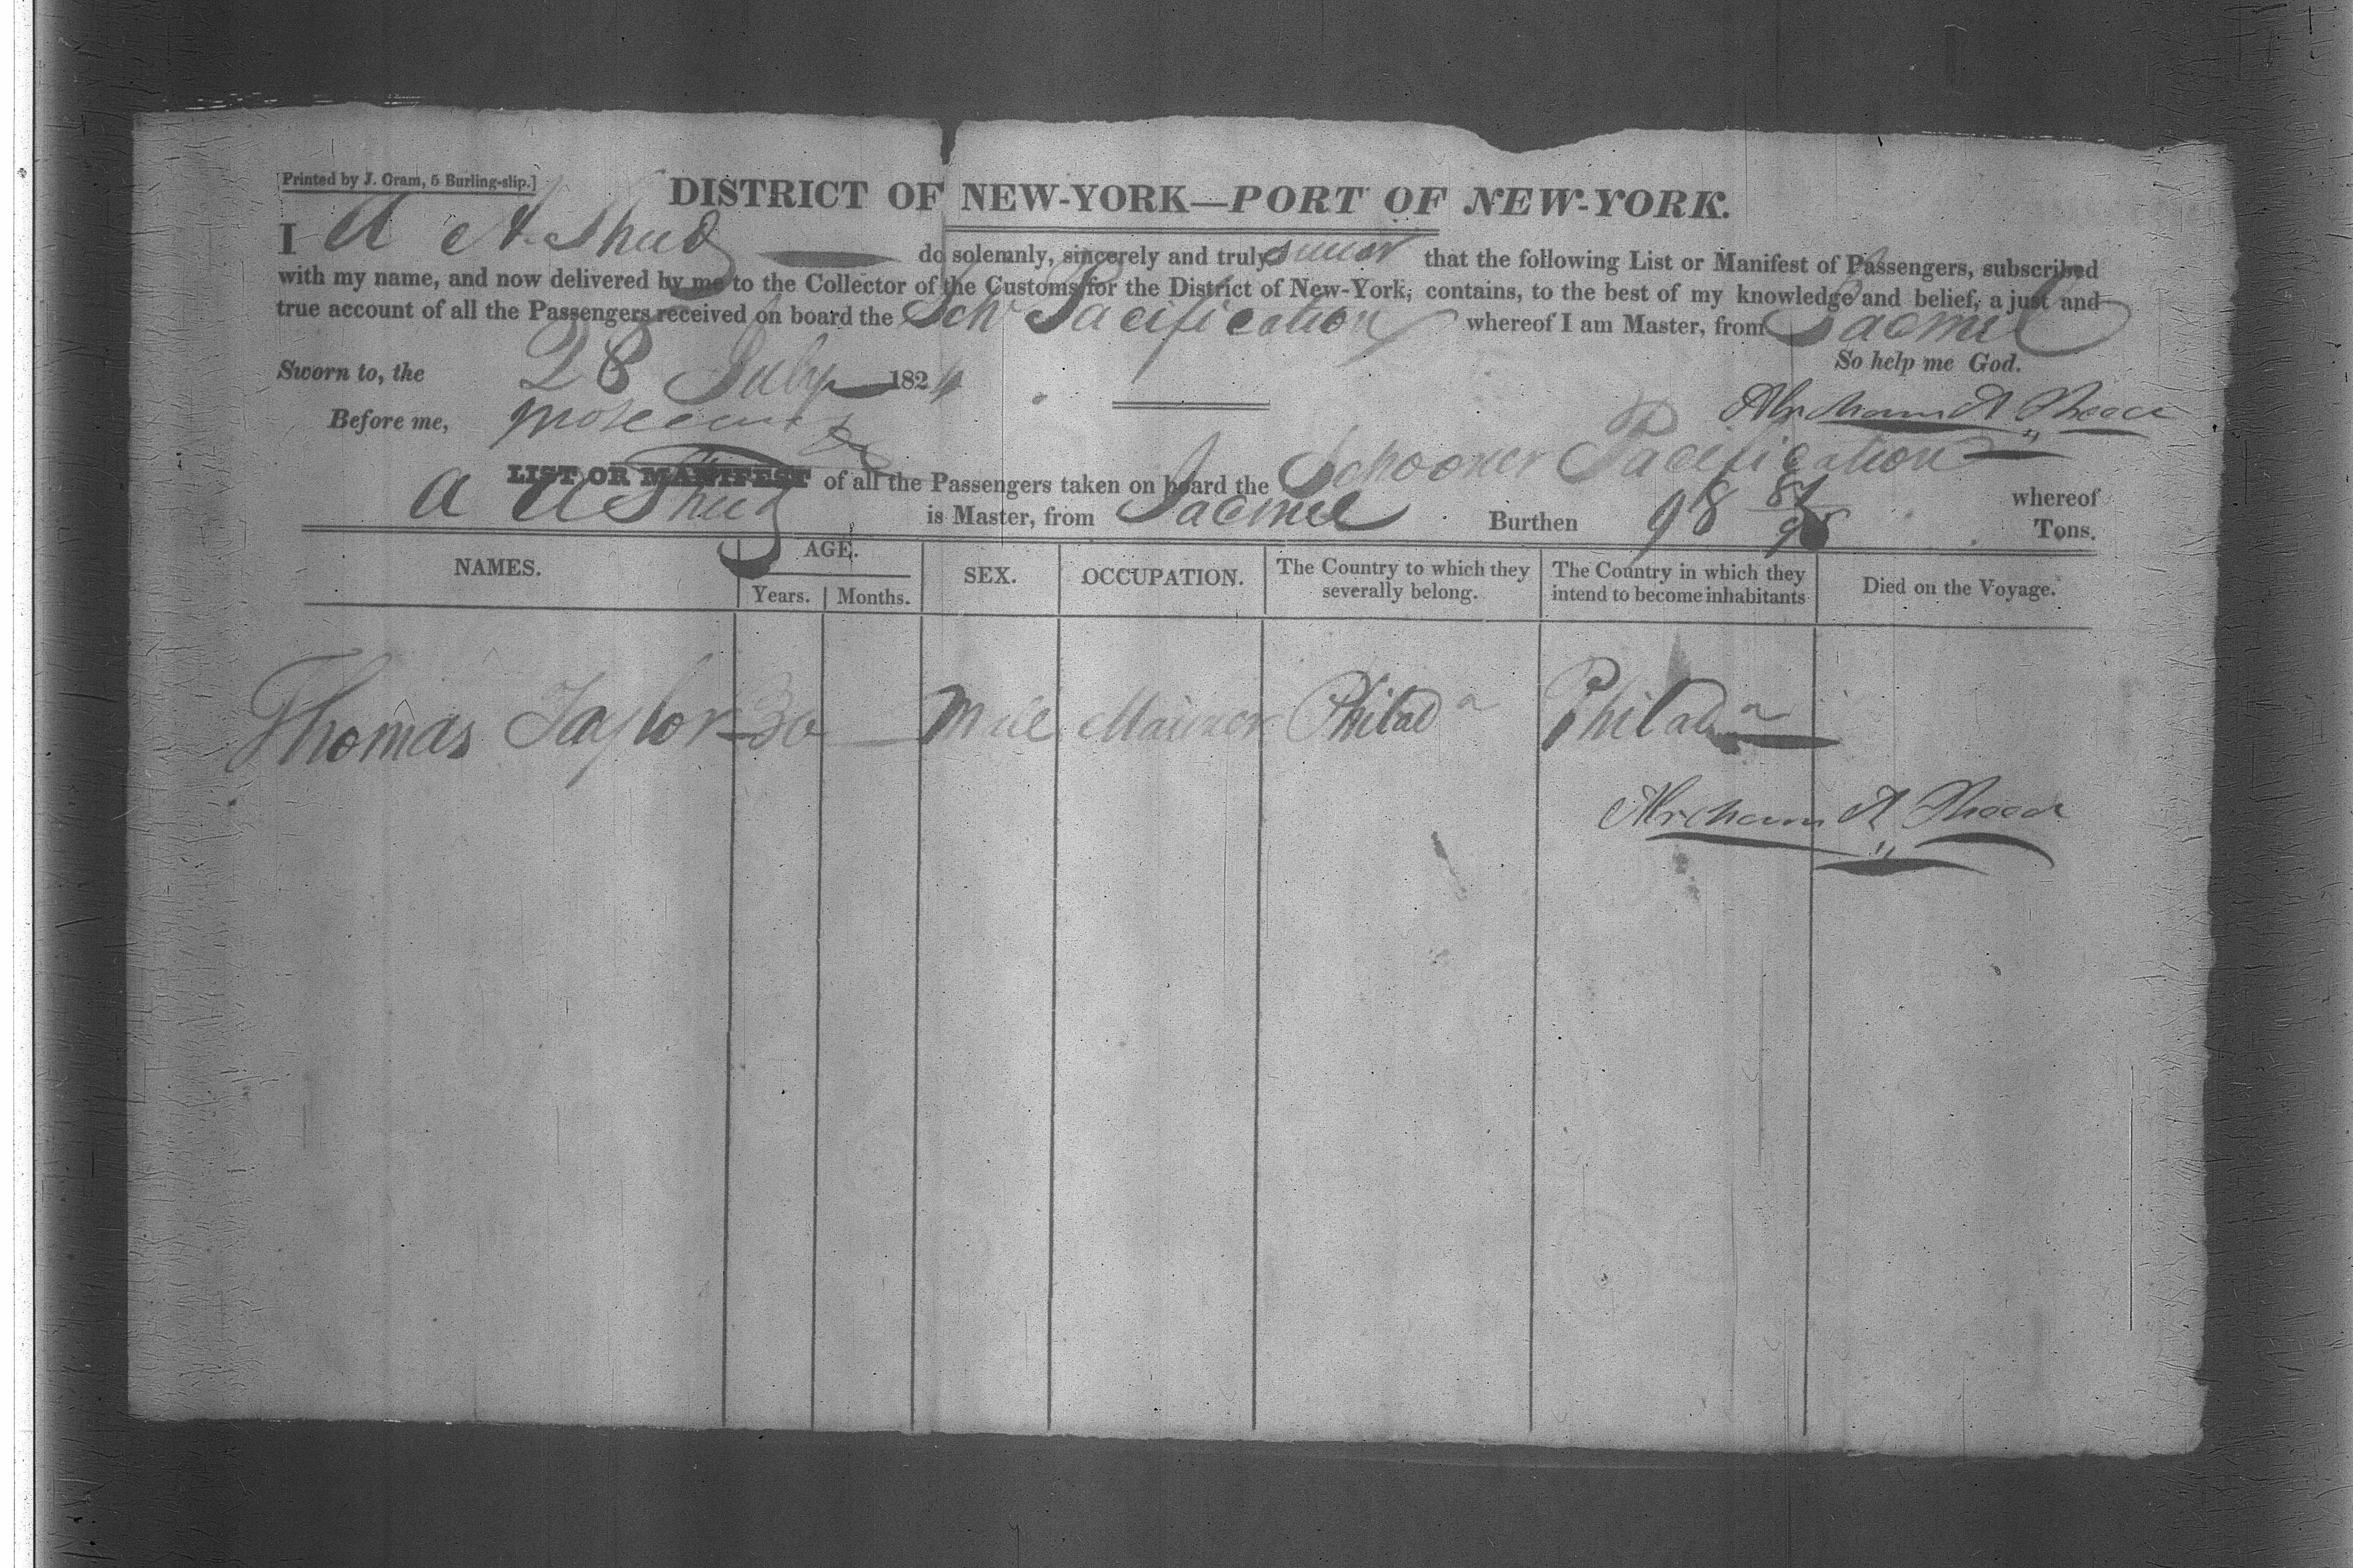 [Printed by J. Gram, 5 Burling-slip.]
DISTRICT OF NEW-YORK—PORT OF NEW-YORK.
I A A Shed do solemnly, sincerely and truly swear that the following List or Manifest of Passengers, subscribed
with my name, and now delivered by me to the Collector of the Customs for the District of New-York, contains, to the best of my knowledge and belief, a just and
true account of all the Passengers received on board the Schr Pacification whereof I am Master, from Jacmel
So help me God.
Sworn to, the 28 July 1824
Abraham A
Before me,
LIST OR MANIFEST of all the Passengers taken on board the Schooner Pacification whereof
A A Shed is Master, from Jacmel Burthen 98 Tons.
NAMES. AGE. Years. Months. SEX. OCCUPATION. The Country to which they severally belong. The Country in which they intend to become inhabitants Died on the Voyage.
Thomas Taylor 30 Male Mariner Philada Philada
Abraham A